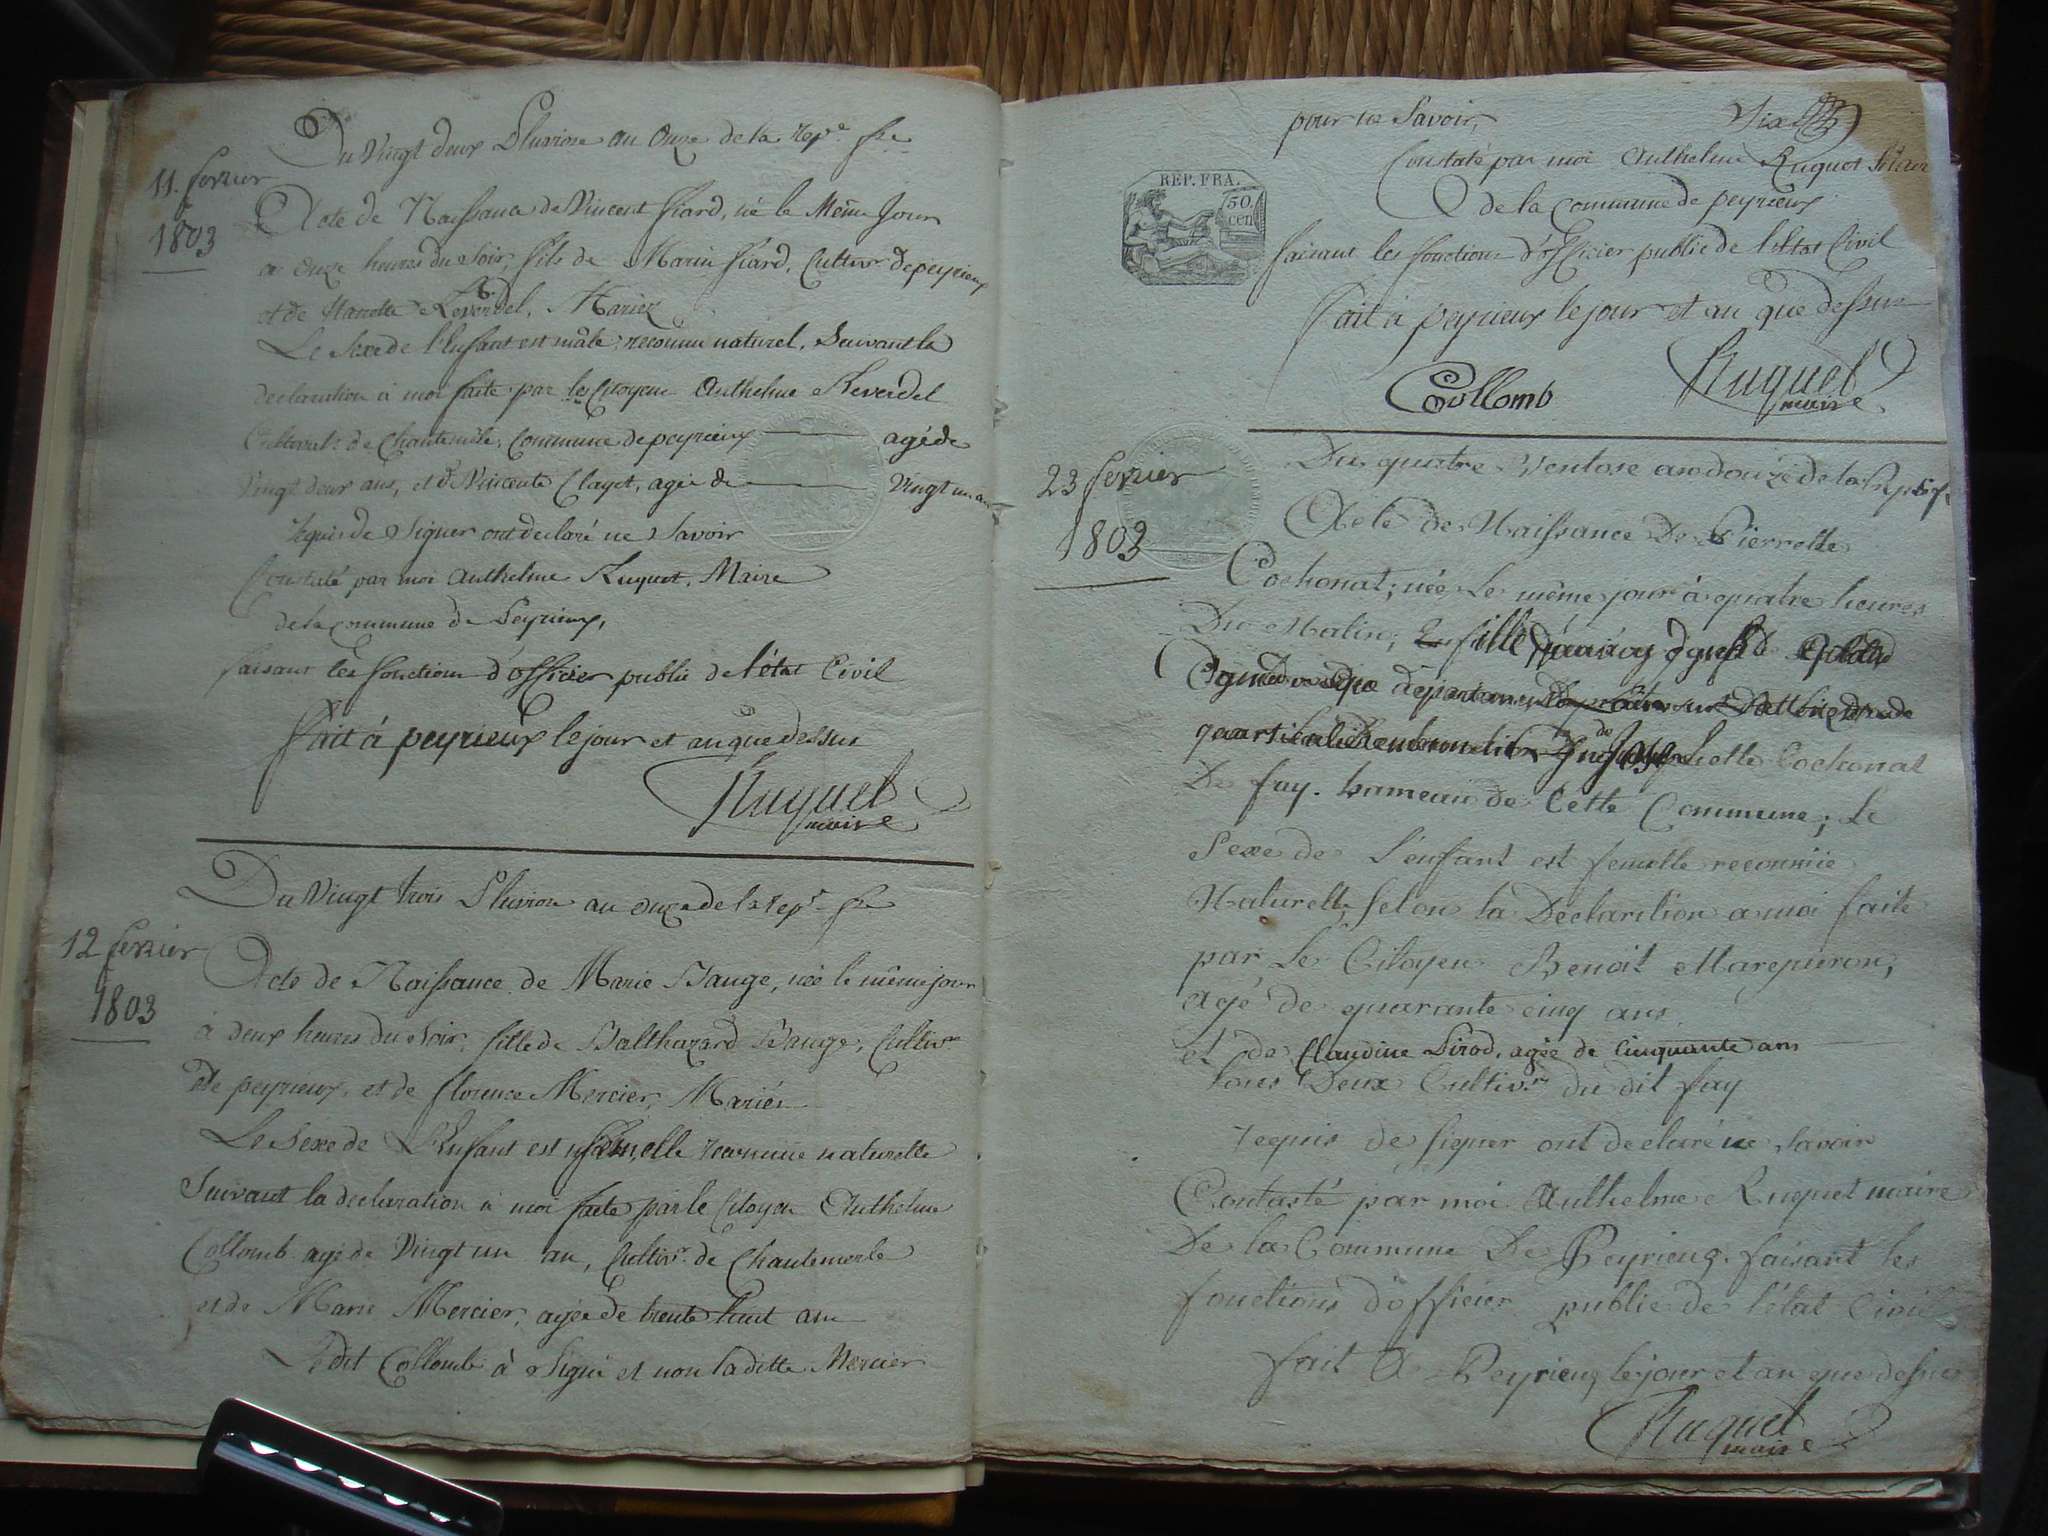 Du Vingt deux Pluviose an Onze de la rep.e f.se
11. fevrier
1803
Acte de Naissance de Vincent fiard, né le Même Jour
a Onze heures du soir, fils de Marin fiard, Cultivr de peyrieux
et de Reverdel, Mariez
Le Sexe de l'Enfant est mâle reconnu naturel, Suivant la
declaration à moi faite par les Citoyens Anthelme Reverdel
de Chantemele, Commune de peyrieux agé de
Vingt deux ans, et de Vincente Clayet, agée de Vingt un an
requis de Signer ont declaré ne Savoir
Constaté par moi Anthelme Ruquet, Maire
de la commune de Peyrieux,
faisant les fonctions d'officier public de l'état Civil
fait à peyrieux le jour et an que dessus
Ruquet
maire
Du Vingt trois Pluviose an onze de la rep.e f.se
12 fevrier
1803
Acte de Naissance de Marie Bauge, née le même jour
à deux heures du soir, fille de Balthazard Bauge, Cultivr
de peyrieux, et de florence Mercier, Mariés
Le Sexe de l'Enfant est femelle reconnue naturelle
Suivant la declaration à moi faite par le Citoyen Anthelme
Collomb agé de Vingt un an, Cultivr. de Chantemerle
et de Marie Mercier, agée de trente huit ans
Ledit Collomb à Signé et non laditte Mercier
pour ne Savoir,
Six
Constaté par moi Anthelme Ruquet Maire
de la commune de peyrieux
REP. FRA.
50.
cen
faisant les fonctions d'officier public de l'état Civil
fait à peyrieux le jour et an que dessus
Collomb
Ruquet
maire
23 fevrier
1803
Du quatre Ventose an douze de la
Acte de Naissance De Pierrette
Cochonat; née Le même jour à quatre heures
Du Matin; fille
Cochonat
De fay. hameau de Cette Commune; Le
Sexe de L'enfant est femelle reconnüe
Naturelle, Selon la Déclaration a moi faite
par Le Citoyen Benoit Marepieron,
agé de quarante cinq ans
et de Claudine Pirod, agée de Cinquante ans
tous Deux Cultivr. du dit fay
requis de Signer ont declaré ne Savoir
Contasté par moi Anthelme Ruquet maire
De la Commune De Peyrieux. faisant les
fonctions d'officier public de l'état Civil
fait a Peyrieux le jour et an que dessus
Ruquet
maire